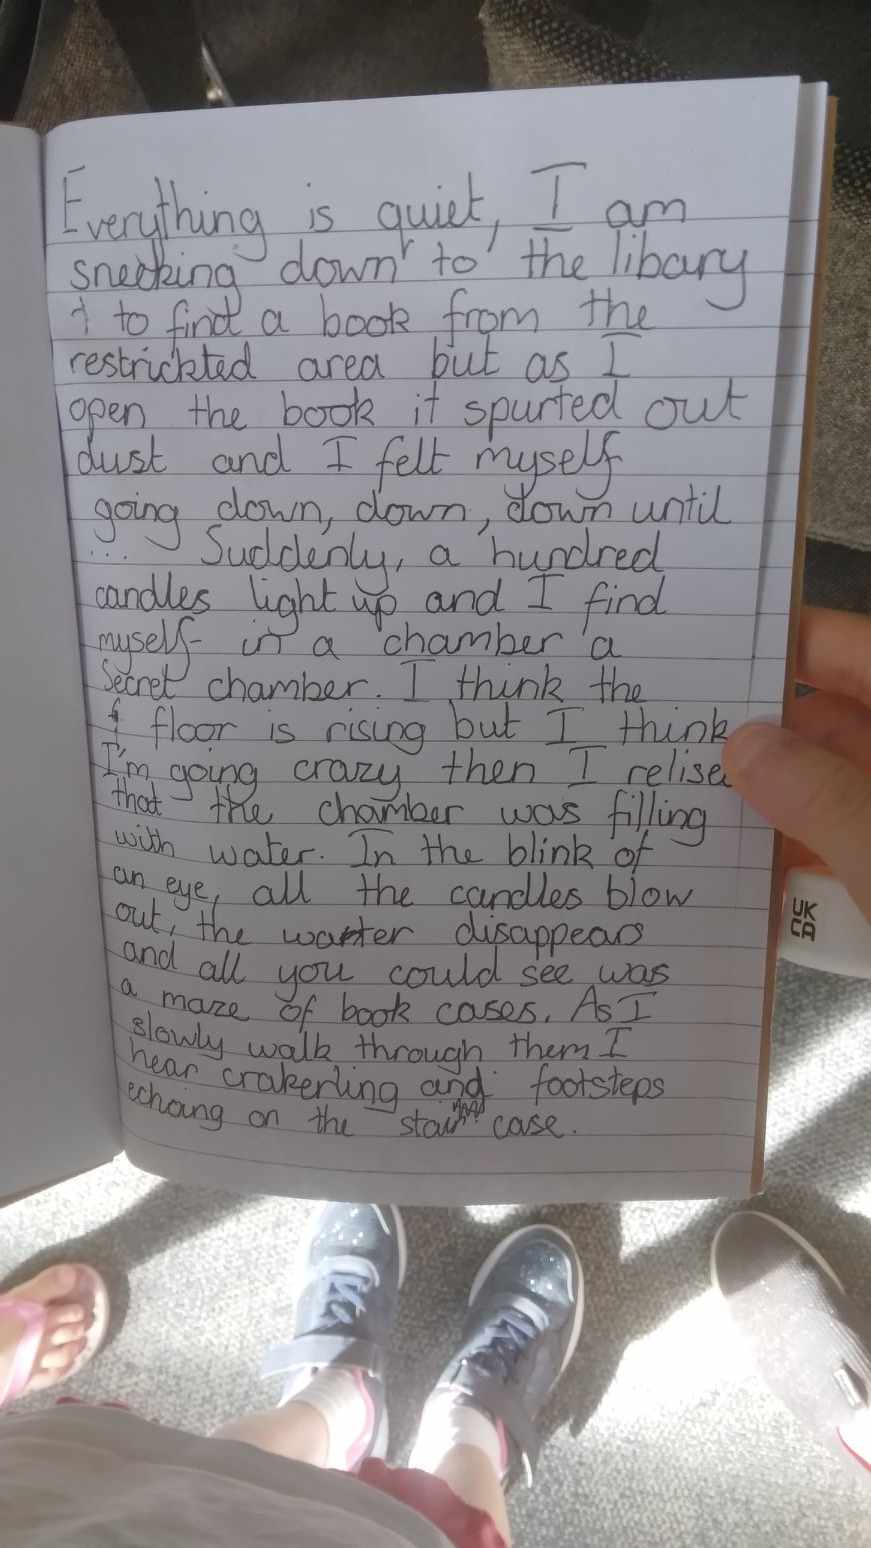 Everything is quiet, I am
sneeking down to the libary
to find a book from the
restrickted area but as I
open the book it spurted out
dust and I felt myself
going down, down, down until
... Suddenly, a hundred
candles light up and I find
myself in a chamber a
secret chamber. I think the
floor is rising but I think
I'm going crazy then I relise
that the chamber was filling
with water. In the blink of
an eye, all the candles blow
out, the water disappears
and all you could see was
a maze of book cases. As I
slowly walk through them I
hear crakerling and footsteps
echoing on the stair case.
UK
CA